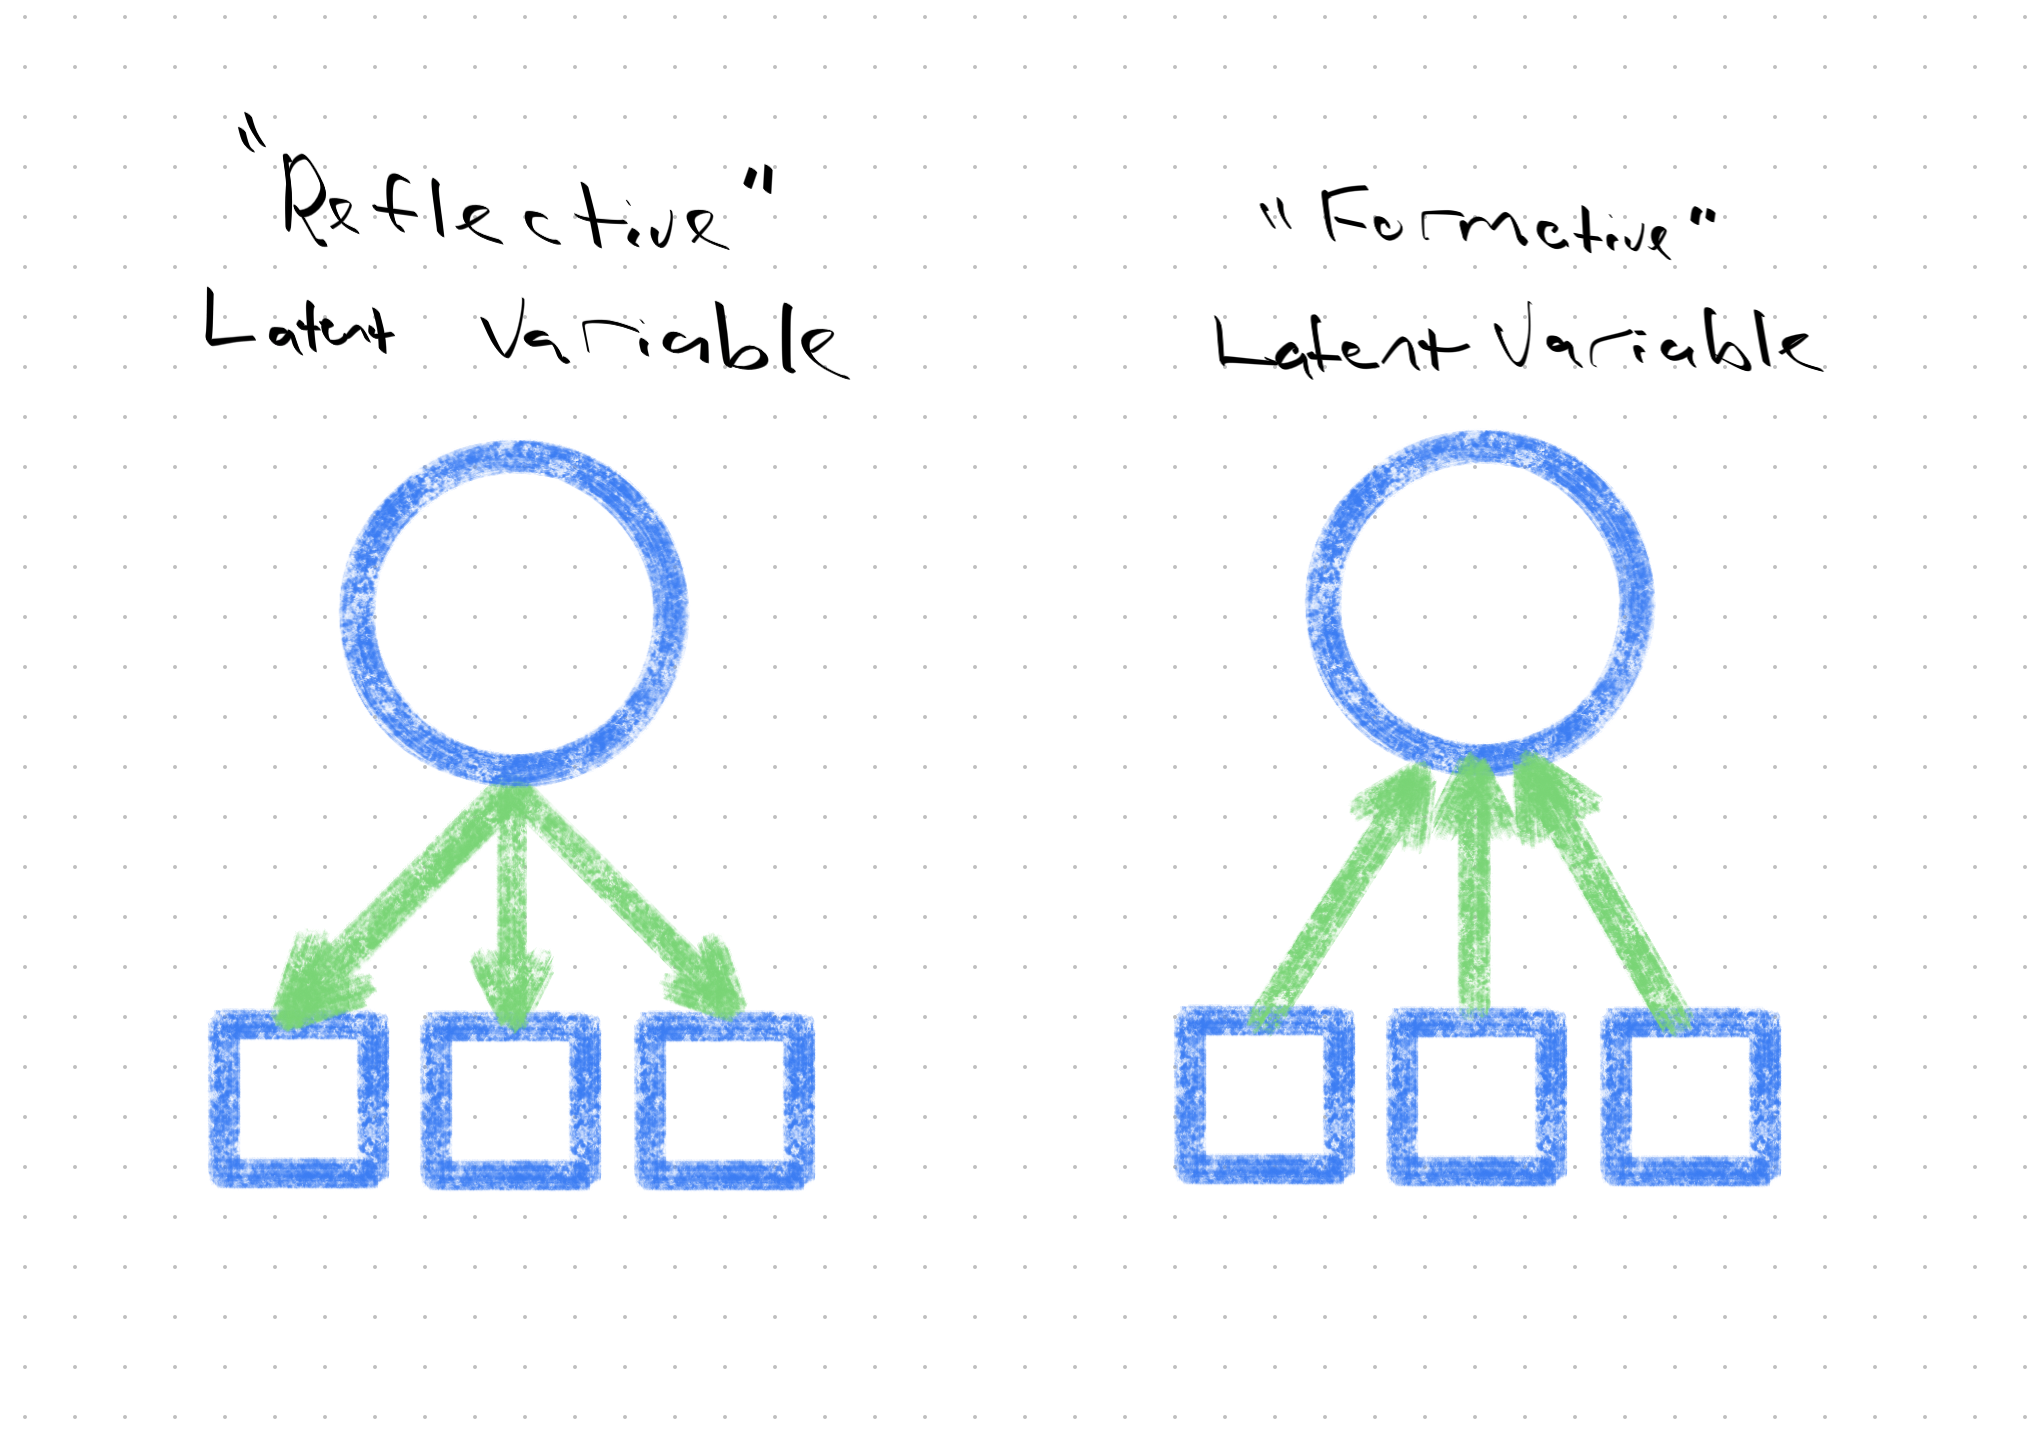 "Reflective"
Latent Variable
"Formative"
Latent Variable